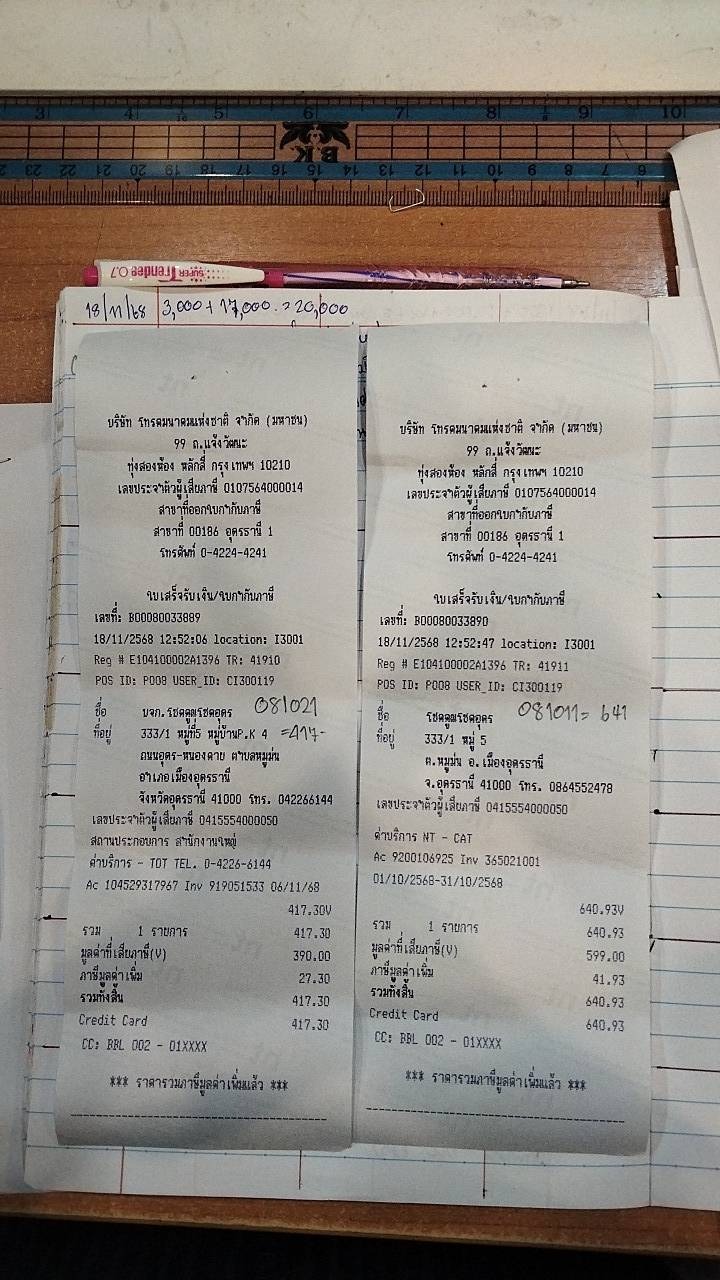 B.K
SUPER Trendee 0.7
18/11/68 3,000 + 17,000.=20,000
บริษัท โทรคมนาคมแห่งชาติ จำกัด (มหาชน)
99 ถ.แจ้งวัฒนะ
ทุ่งสองห้อง หลักสี่ กรุงเทพฯ 10210
เลขประจำตัวผู้เสียภาษี 0107564000014
สาขาที่ออกใบกำกับภาษี
สาขาที่ 00186 อุดรธานี 1
โทรศัพท์ 0-4224-4241
ใบเสร็จรับเงิน/ใบกำกับภาษี
เลขที่: B00080033889
18/11/2568 12:52:06 location: I3001
Reg # E104100002A1396 TR: 41910
POS ID: P008 USER_ID: CI300119
ชื่อ บจก.โชคคูณโชคอุดร 081021
ที่อยู่ 333/1 หมู่ที่5 หมู่บ้านP.K 4 =417-
ถนนอุดร-หนองคาย ตำบลหมูม่น
อำเภอเมืองอุดรธานี
จังหวัดอุดรธานี 41000 โทร. 042266144
เลขประจำตัวผู้เสียภาษี 0415554000050
สถานประกอบการ สำนักงานใหญ่
ค่าบริการ - TOT TEL. 0-4226-6144
Ac 104529317967 Inv 919051533 06/11/68
417.30V
รวม 1 รายการ 417.30
มูลค่าที่เสียภาษี(V) 390.00
ภาษีมูลค่าเพิ่ม 27.30
รวมทั้งสิ้น 417.30
Credit Card 417.30
CC: BBL 002 - 01XXXX
*** ราคารวมภาษีมูลค่าเพิ่มแล้ว ***
บริษัท โทรคมนาคมแห่งชาติ จำกัด (มหาชน)
99 ถ.แจ้งวัฒนะ
ทุ่งสองห้อง หลักสี่ กรุงเทพฯ 10210
เลขประจำตัวผู้เสียภาษี 0107564000014
สาขาที่ออกใบกำกับภาษี
สาขาที่ 00186 อุดรธานี 1
โทรศัพท์ 0-4224-4241
ใบเสร็จรับเงิน/ใบกำกับภาษี
เลขที่: B00080033890
18/11/2568 12:52:47 location: I3001
Reg # E104100002A1396 TR: 41911
POS ID: P008 USER_ID: CI300119
ชื่อ โชคคูณโชคอุดร 081011= 641
ที่อยู่ 333/1 หมู่ 5
ต.หมูม่น อ.เมืองอุดรธานี
จ.อุดรธานี 41000 โทร. 0864552478
เลขประจำตัวผู้เสียภาษี 0415554000050
ค่าบริการ NT - CAT
Ac 9200106925 Inv 365021001
01/10/2568-31/10/2568
640.93V
รวม 1 รายการ 640.93
มูลค่าที่เสียภาษี(V) 599.00
ภาษีมูลค่าเพิ่ม 41.93
รวมทั้งสิ้น 640.93
Credit Card 640.93
CC: BBL 002 - 01XXXX
*** ราคารวมภาษีมูลค่าเพิ่มแล้ว ***